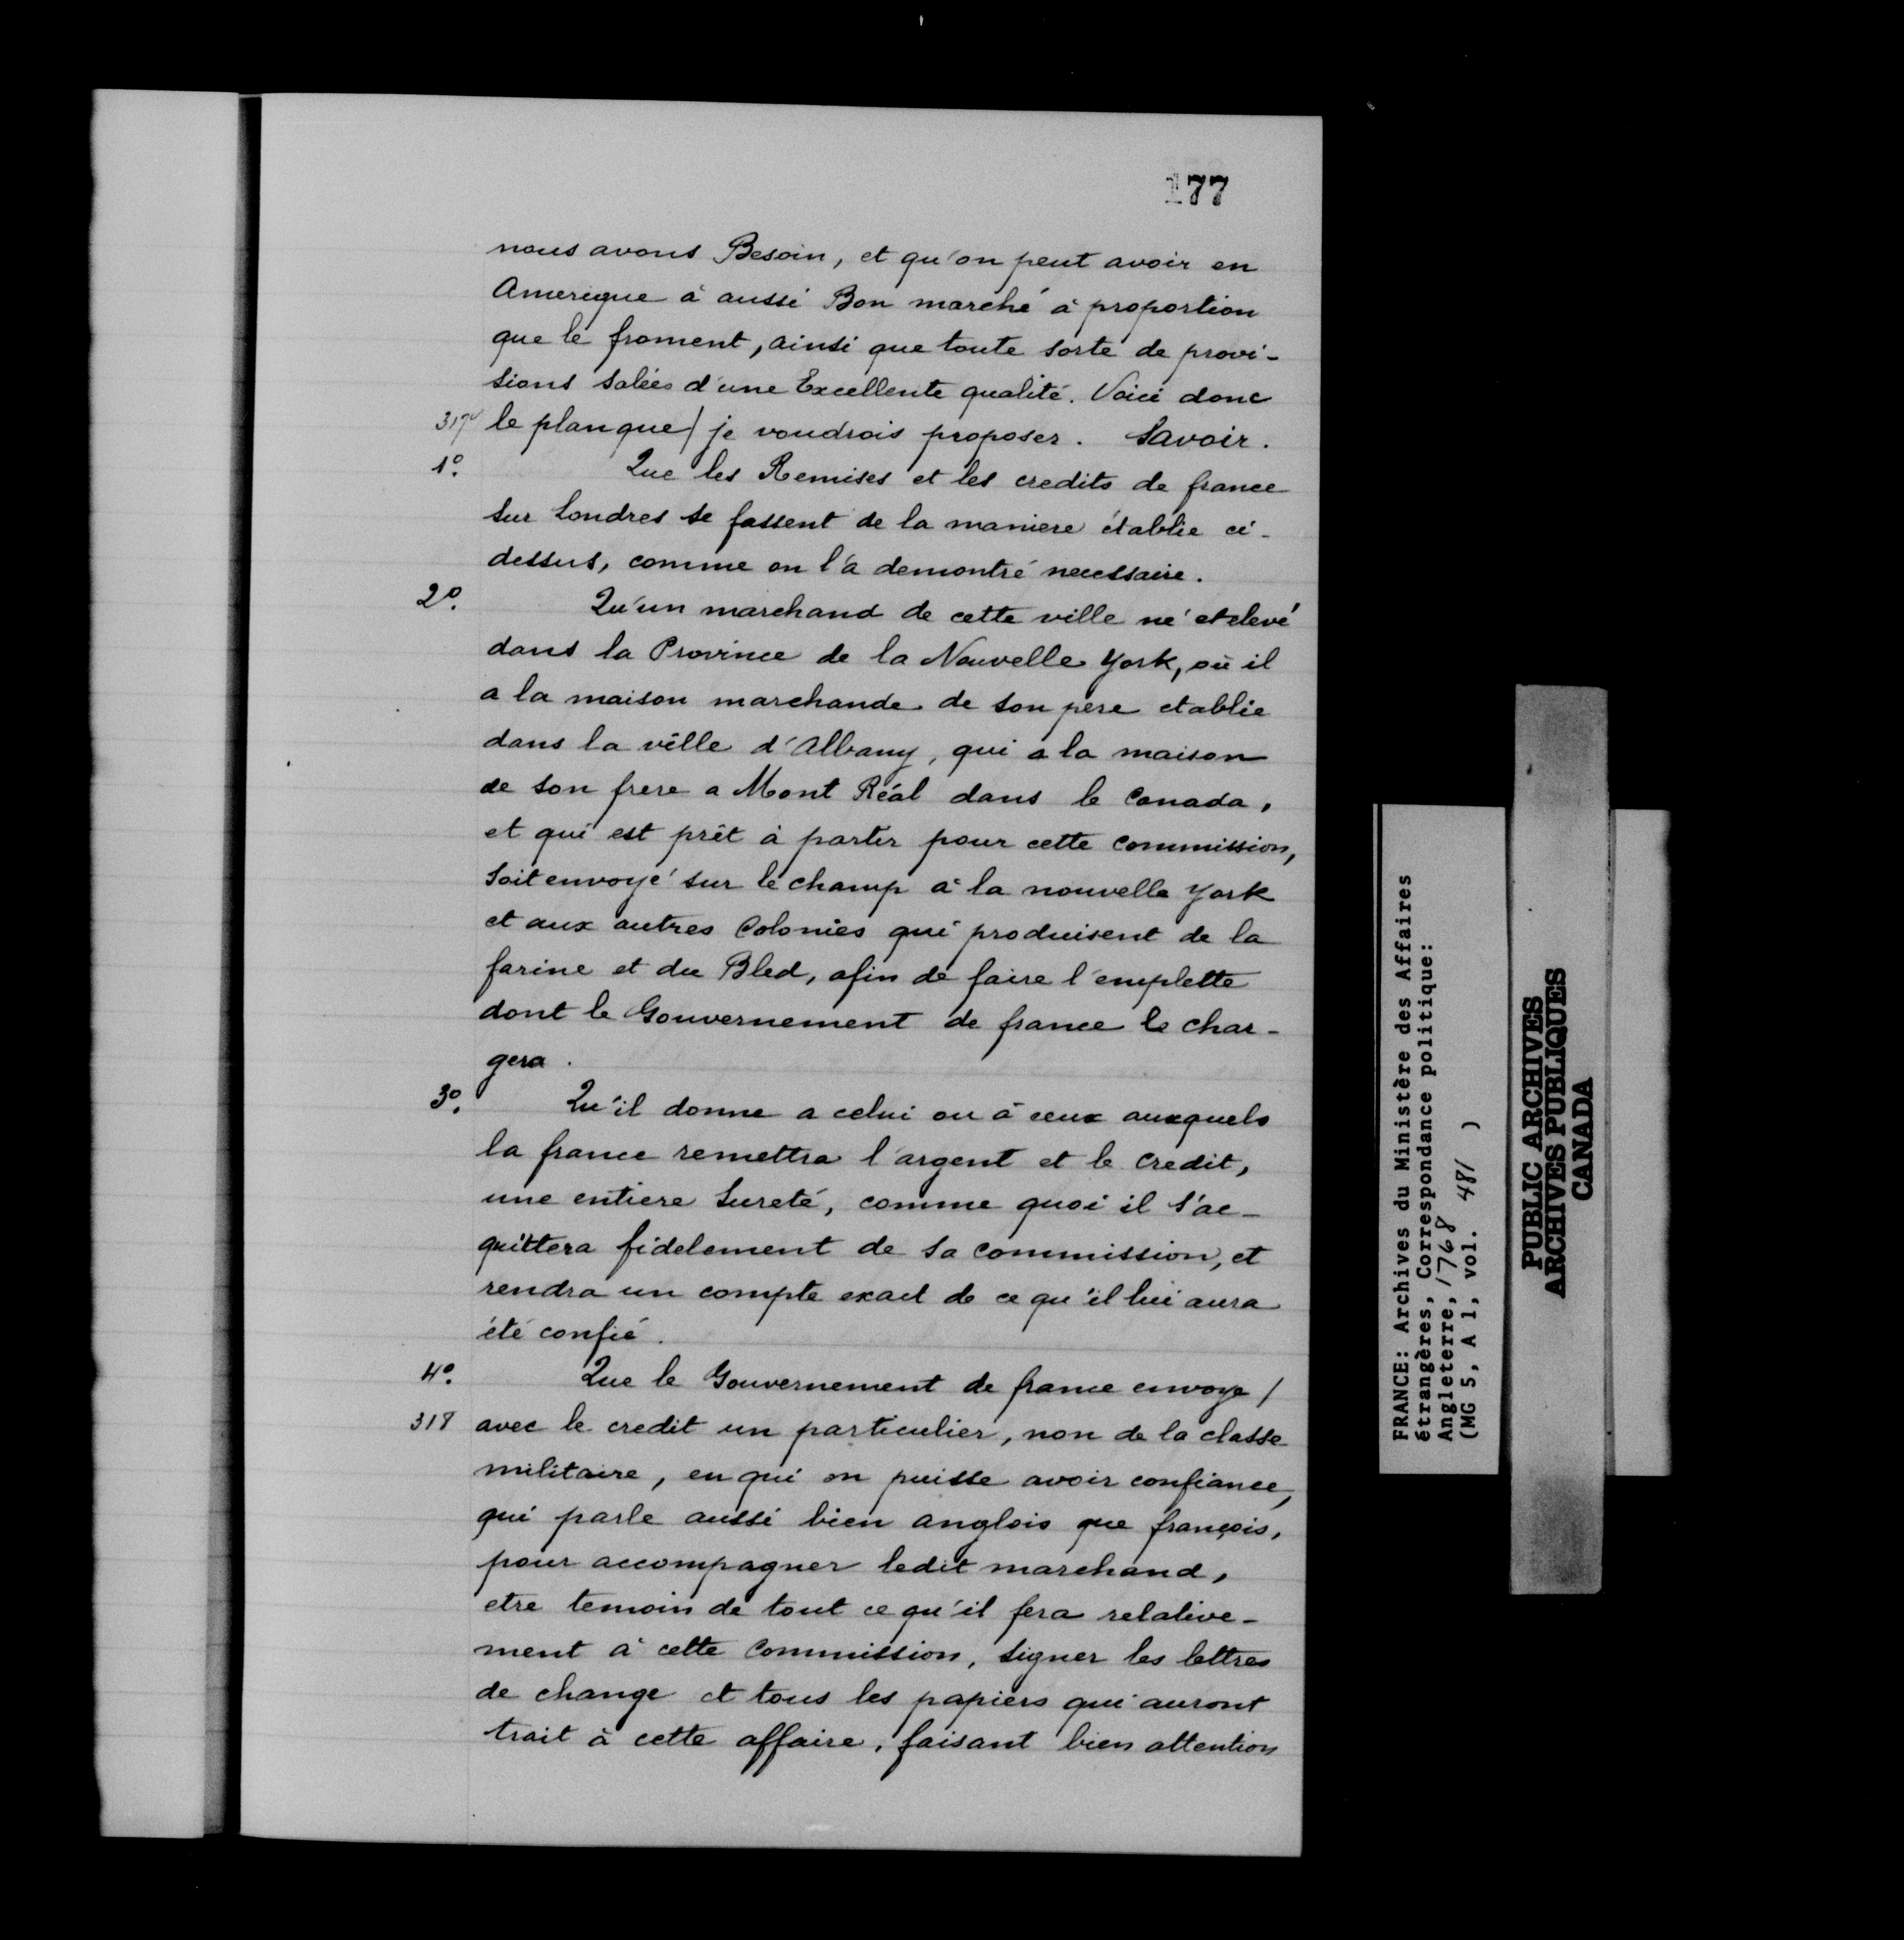 177
nous avons Besoin, et qu'on peut avoir en
Amerique à aussi Bon marché à proportion
que le froment, ainsi que toute sorte de provi-
sions salées d'une Excellente qualité. Voici donc
317v le plan que / je voudrois proposer. Savoir.
1o. Que les Remises et les credits de france
sur Londres se fassent de la maniere établie ci-
dessus, comme on l'a demontré necessaire.
2o. Qu'un marchand de cette ville né et elevé
dans la Province de la Nouvelle York, où il
a la maison marchande de son pere etablie
dans la ville d'Albany, qui a la maison
de son frere a Mont Réal dans le Canada,
et qui est prêt à partir pour cette Commission,
soit envoyé sur le champ à la nouvelle York
et aux autres Colonies qui produisent de la
farine et du Bled, afin de faire l'emplette
dont le Gouvernement de france le char-
gera.
3o. Qu'il donne a celui ou à ceux auxquels
la france remettra l'argent et le credit,
une entiere Sureté, comme quoi il s'ac-
quittera fidelement de sa commission, et
rendra un compte exact de ce qu'il lui aura
été confié.
4o. Que le Gouvernement de france envoye /
318 avec le credit un particulier, non de la classe
militaire, en qui on puisse avoir confiance,
qui parle aussi bien anglois que françois,
pour accompagner ledit marchand,
etre temoin de tout ce qu'il fera relative-
ment à cette Commission, signer les lettres
de change et tous les papiers qui auront
trait à cette affaire, faisant bien attention
FRANCE: Archives du Ministère des Affaires
étrangères, Correspondance politique:
Angleterre, 1768
(MG 5, A 1, vol. 481 )
PUBLIC ARCHIVES
ARCHIVES PUBLIQUES
CANADA